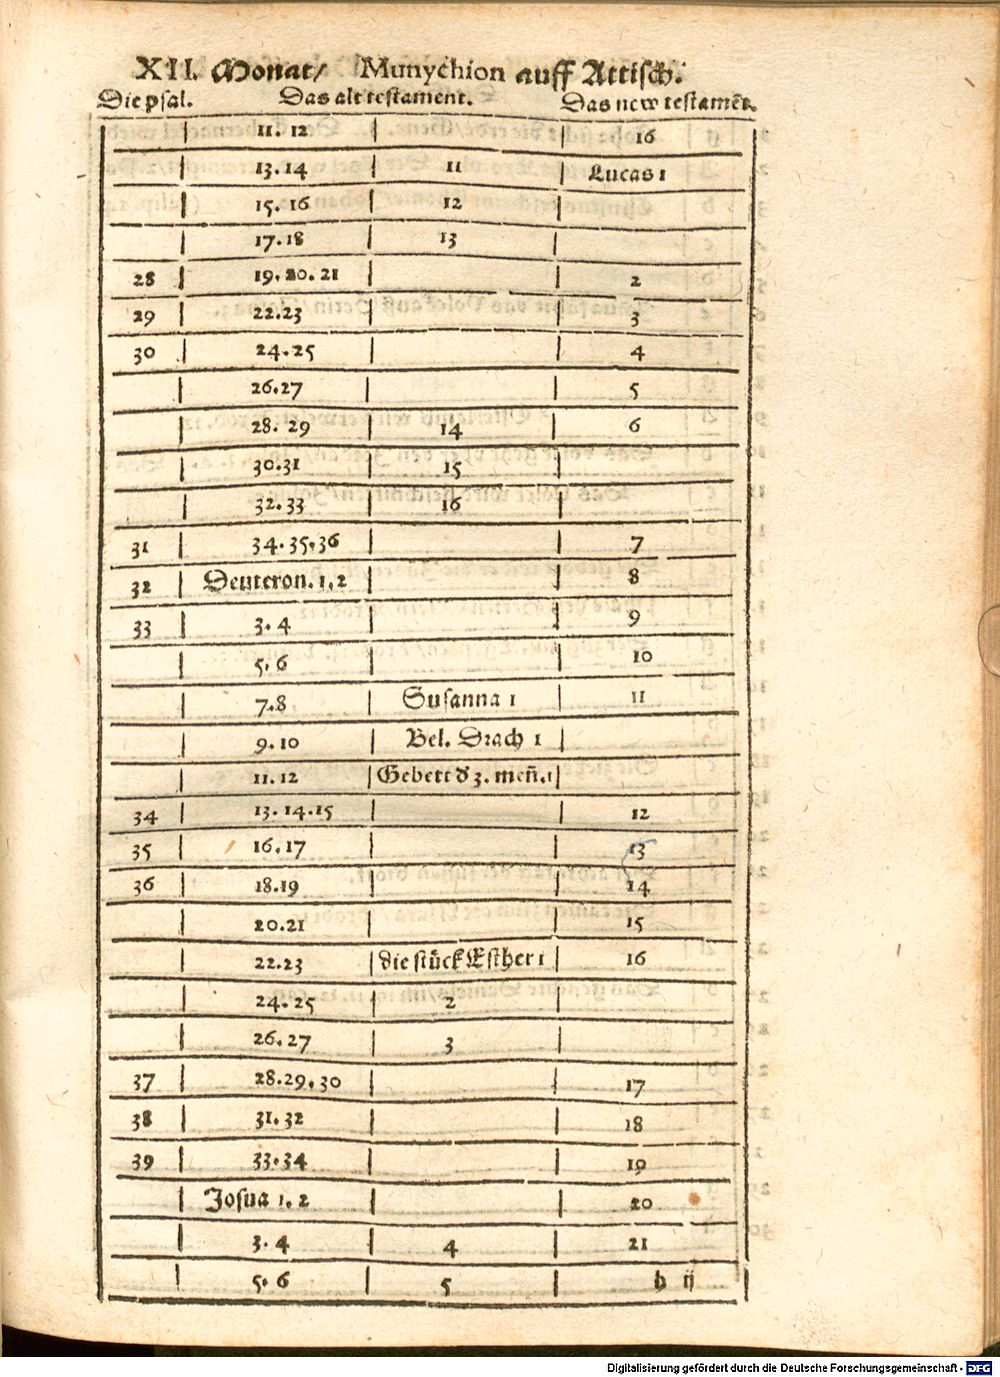 XII. Monat/ Munychion auff Attisch.
Die psal. Das alt testament. Das new testamēt.
11. 12 16
13. 14 11 Lucas 1
15. 16 12
17. 18 13
28 19. 20. 21 2
29 22. 23 3
30 24. 25 4
26. 27 5
28. 29 14 6
30. 31 15
32. 33 16
31 34. 35. 36 7
32 Deuteron. 1. 2 8
33 3. 4 9
5. 6 10
7. 8 Susanna 1 11
9. 10 Bel. Drach 1
11. 12 Gebett d 3. meñ. 1
34 13. 14. 15 12
35 16. 17 13
36 18. 19 14
20. 21 15
22. 23 die stück Esther 1 16
24. 25 2
26. 27 3
37 28. 29. 30 17
38 31. 32 18
39 33. 34 19
Josua 1. 2 20
3. 4 4 21
5. 6 5 b ij
Digitalisierung gefördert durch die Deutsche Forschungsgemeinschaft - DFG